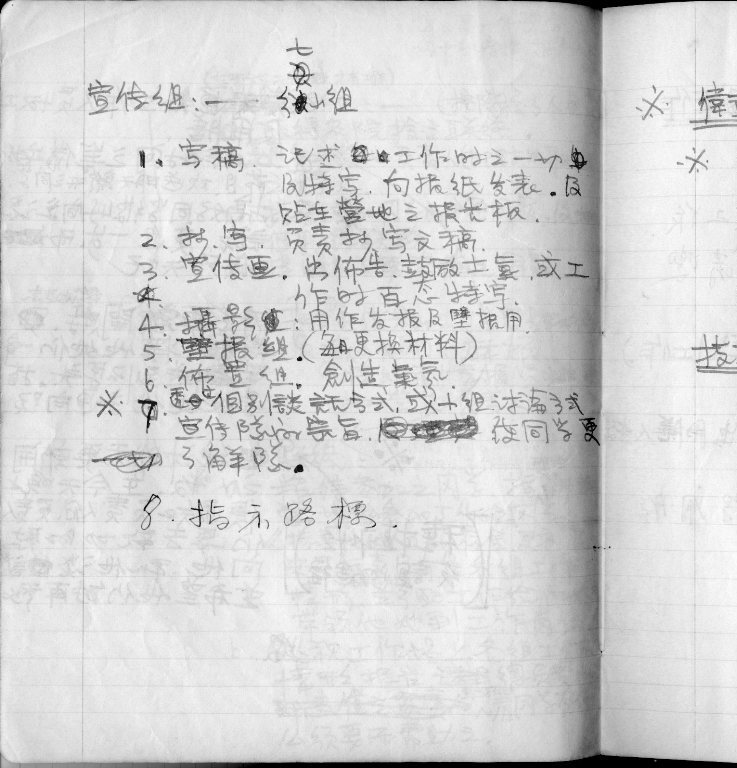 七
宣传組:—— 小組
1. 写稿. 记述工作时之一切
及特写. 向报纸发表. 及
贴在營地之报告板.
2. 抄.写. 负责抄写文稿.
3. 宣传画. 出佈告. 鼓励士氣. 或工
作时百态特写.
4. 攝影: 用作发报及壁报用.
5. 壁报組. (每日更换材料)
6. 佈置組. 創造氣氛.
※ 7 個別談話方式. 或小組讨論方式
宣传隊的宗旨. 使同学更
了解隊.
8. 指示路標.
※ 偉
※
技